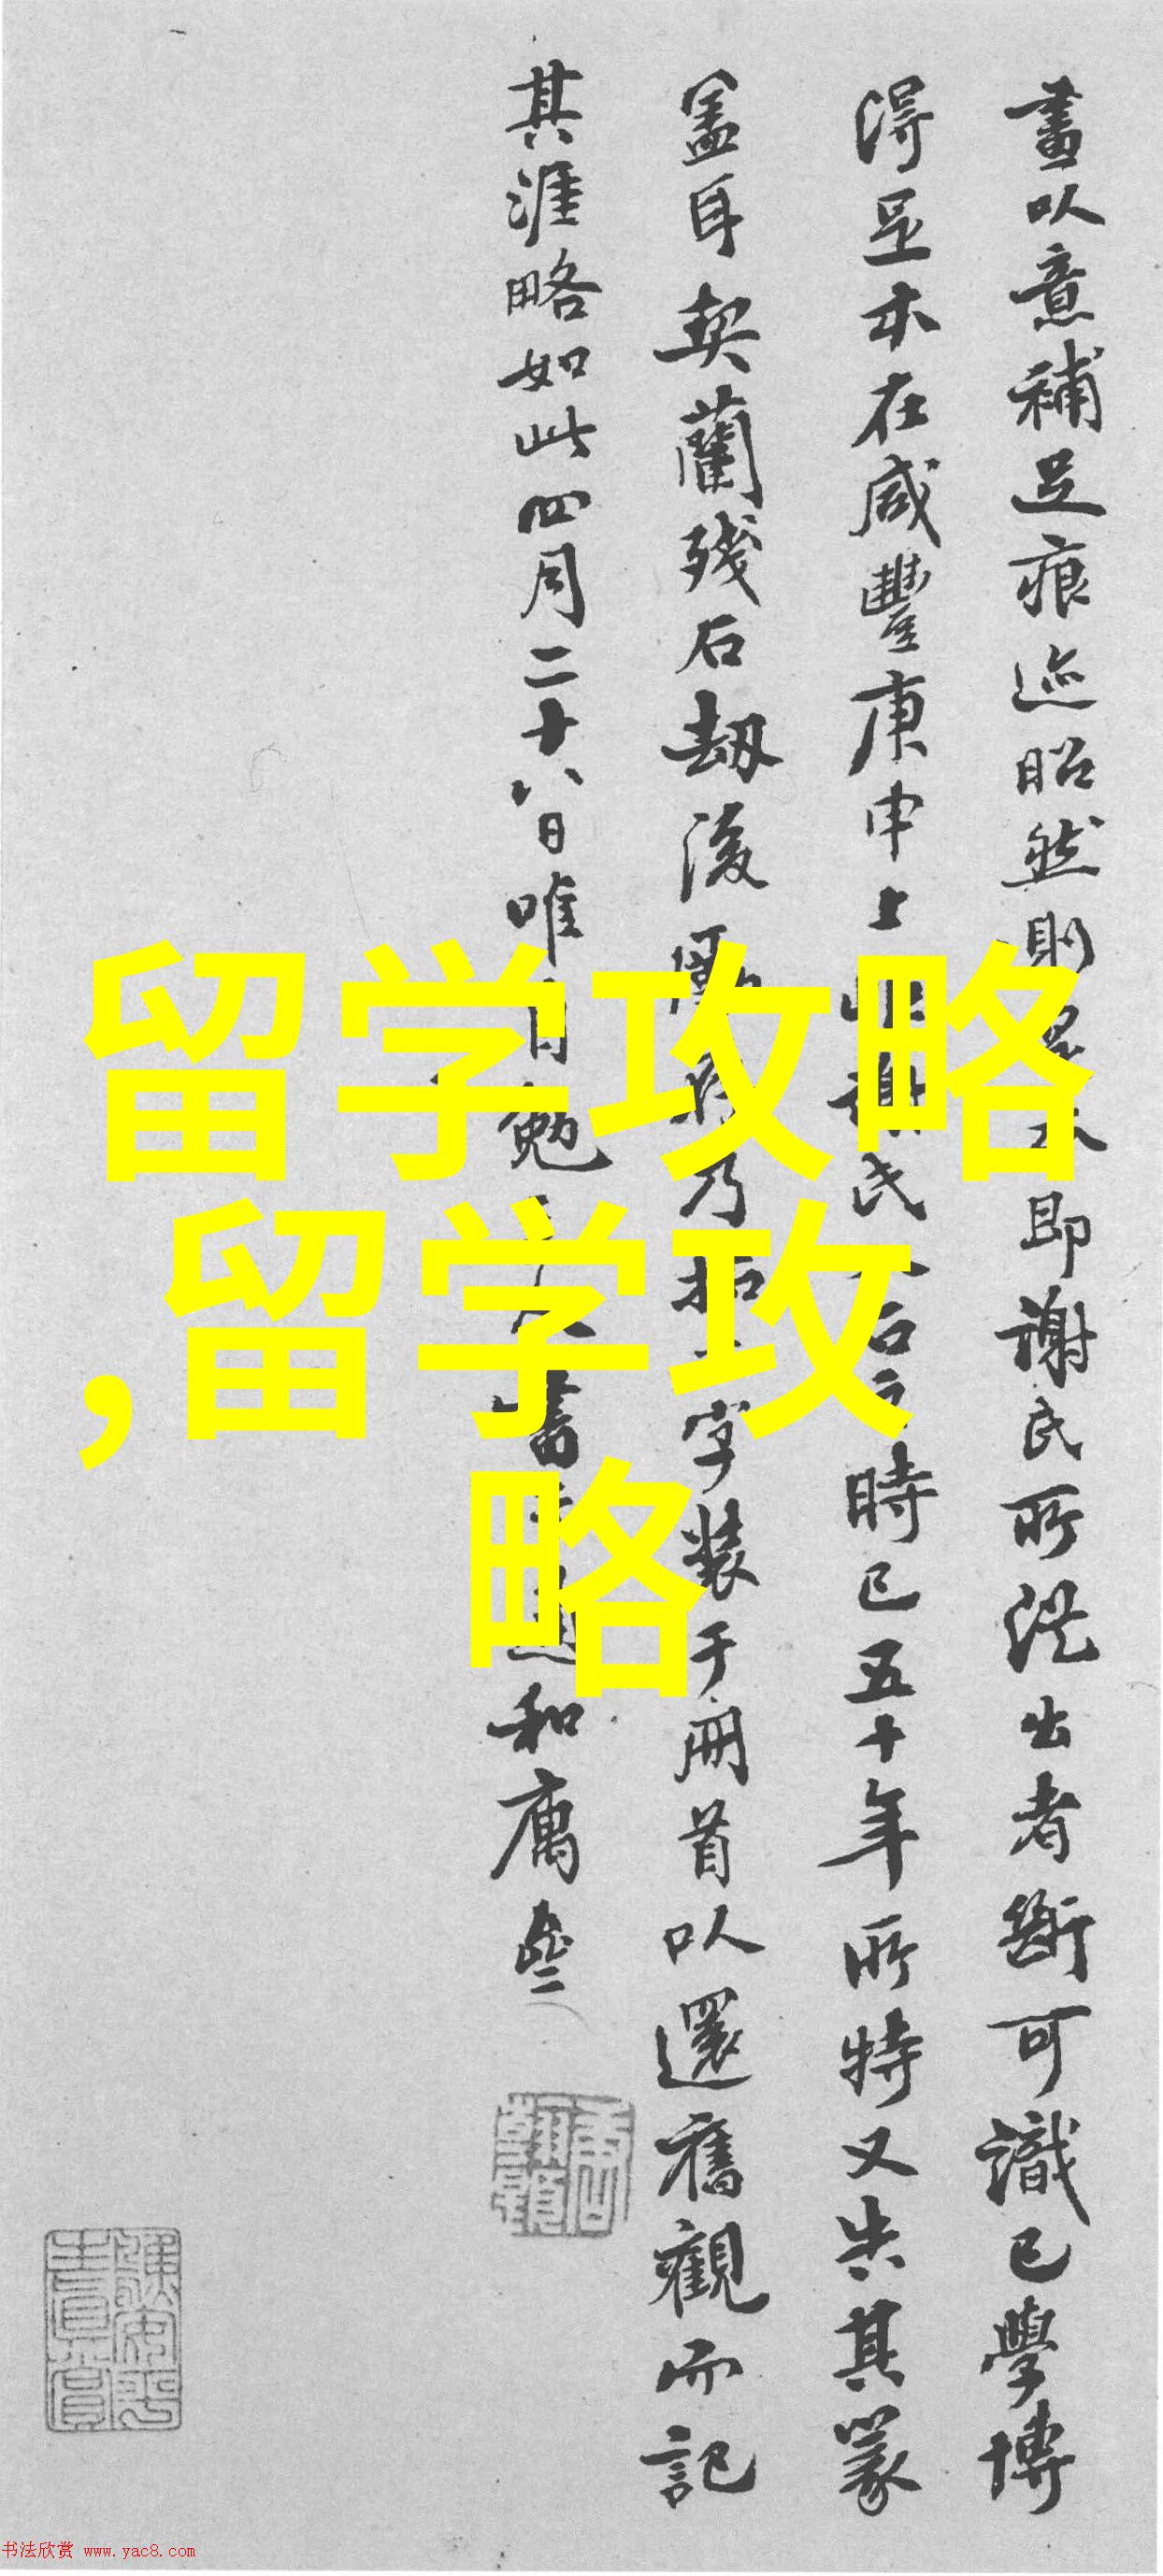 畫以意補足痕迹昭然則即謝氏所洗出者斷可識已學博
得足本在咸豐庚申上謝氏時已五十年所特又失其篆
蓋耳契蘭殘石劫後乃拓字裝于冊首以還舊觀而記
其涯略如此四月二十八日唯自勉書和庵
留学攻略
,留学攻
略
书法欣赏 www.yac8.com